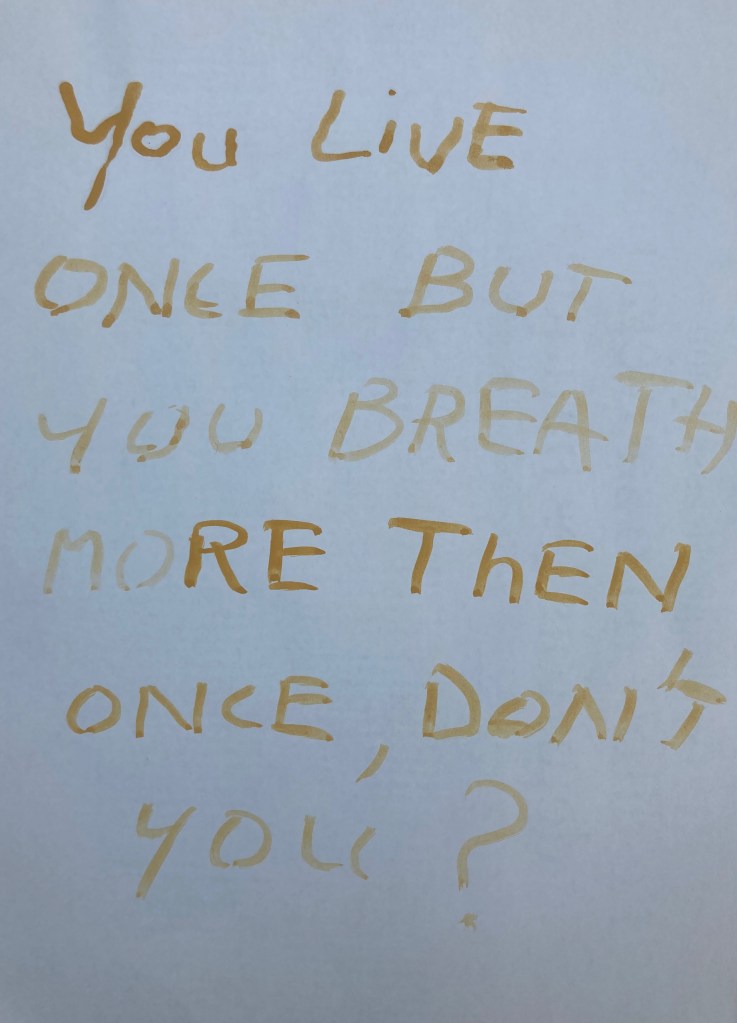 You LiVE
ONCE BUT
YOU BREATH
MORE THEN
ONCE, DON'T
YOU?